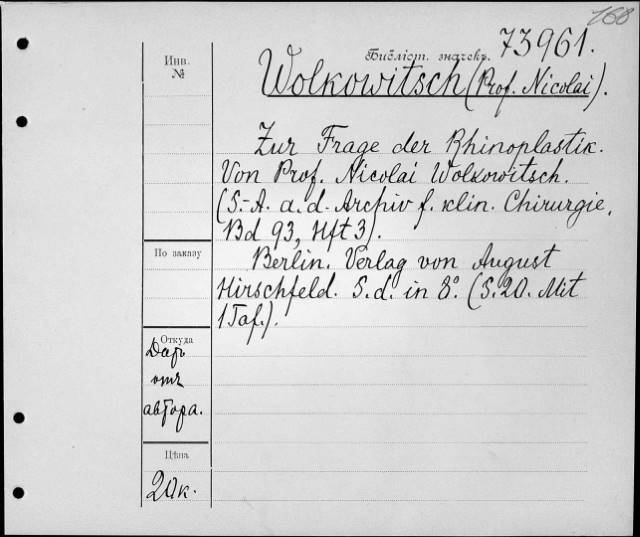 168
Библіот. значекъ. 73961.
Инв. №
Wolkowitsch (Prof. Nicolai).
Zur Frage der Rhinoplastik.
Von Prof. Nicolai Wolkowitsch.
(S.-A. a. d. Archiv f. klin. Chirurgie,
Bd 93, Hft 3).
По заказу
Berlin. Verlag von August
Hirschfeld. S. d. in 8°. (S. 20. Mit
1 Taf.).
Откуда
Даръ
отъ
автора.
Цѣна
20 к.